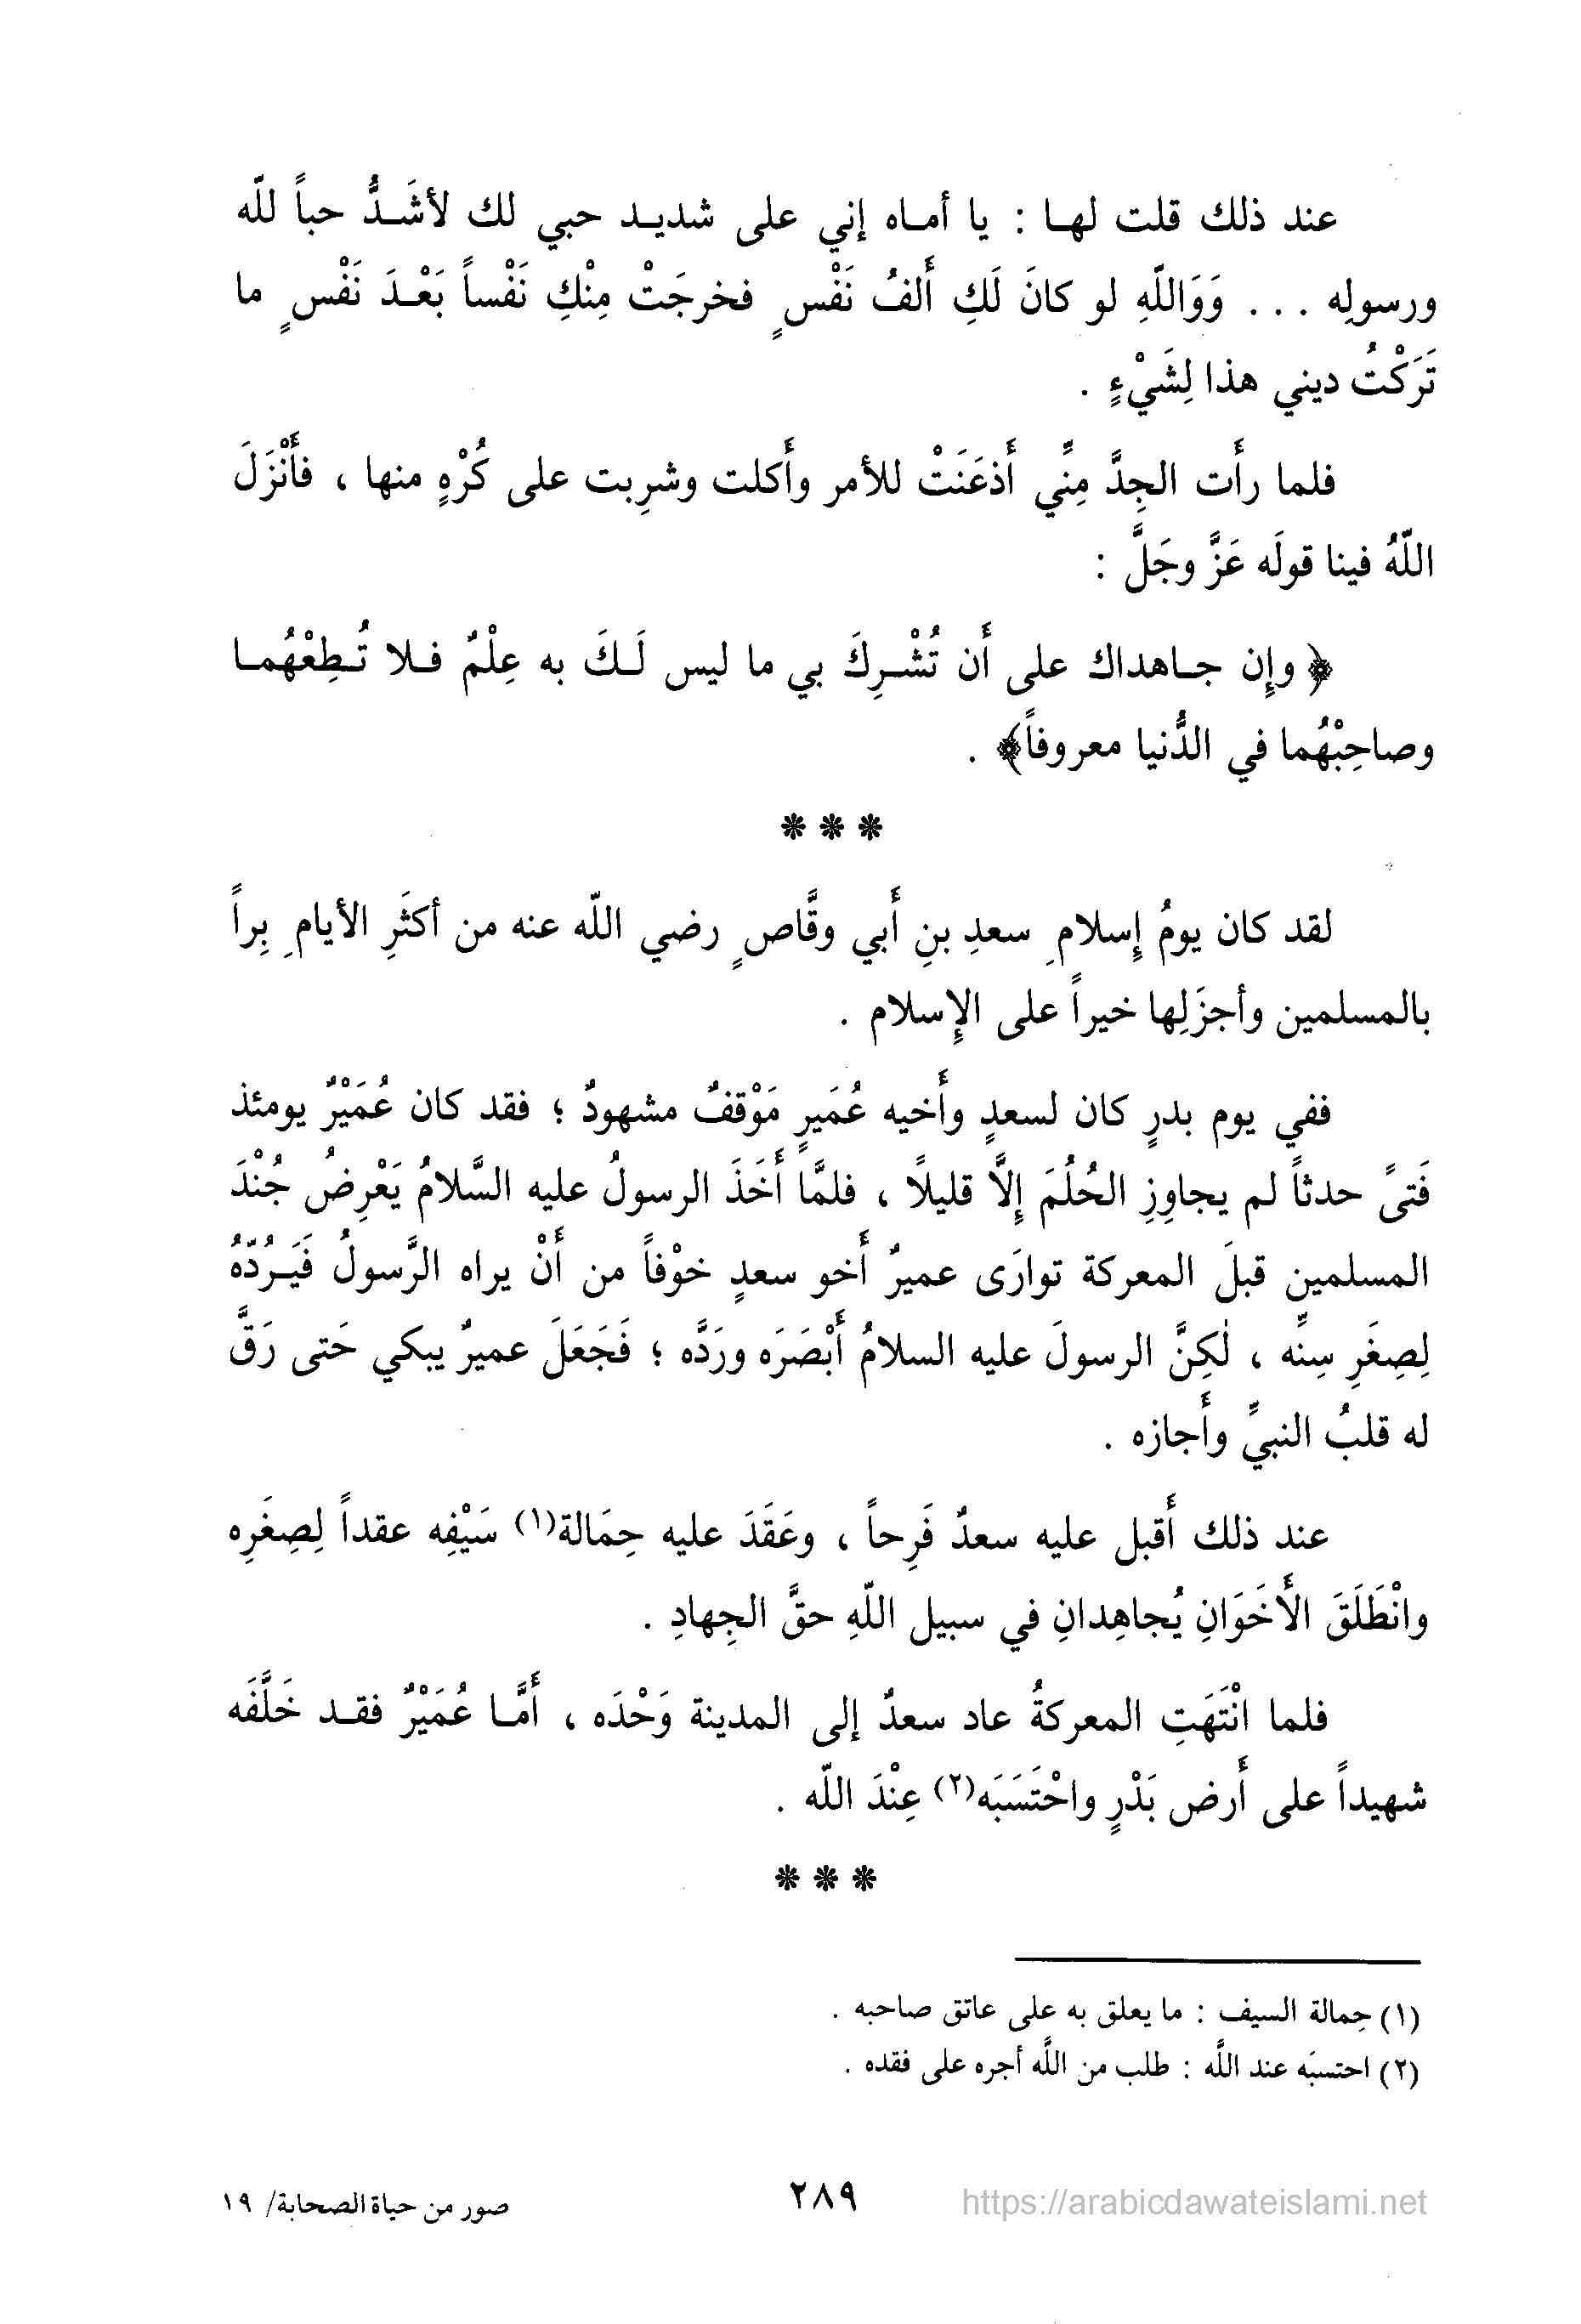 عند ذلك قلت لهـا : يا أمـاه إني على شديـد حبي لك لأشَـدُّ حباً للّه
ورسولِه . . . وَوَاللّهِ لو كانَ لَكِ أَلفُ نَفْسٍ فخرجَتْ مِنْكِ نَفْساً بَعْـدَ نَفْسٍ ما
تَرَكْتُ ديني هذا لِشَيْءٍ .
فلما رأَت الجِدَّ مِنِّي أَذعَنَتْ للأمر وأَكلت وشرِبت على كُرْهٍ منها ، فأَنْزَلَ
اللّهُ فينا قولَه عَزَّ وجَلَّ :
﴿ وإِن جـاهداك على أَن تُشْـرِكَ بي ما ليس لَـكَ به عِلْمٌ فـلا تُـطِعْهُمـا
وصاحِبْهُما في الدُّنيا معروفاً﴾ .
❋ ❋ ❋
لقد كان يومُ إِسلامِ سعدِ بنِ أَبي وقَّاصٍ رضي اللّه عنه من أكثَرِ الأيامِ بِراً
بالمسلمين وأجزَلِها خيراً على الإِسلام .
ففي يوم بدرٍ كان لسعدٍ وأَخيه عُمَيرٍ مَوْقفٌ مشهودٌ ؛ فقد كان عُمَيْرٌ يومئذ
فَتىً حدثاً لم يجاوِزِ الحُلُمَ إِلَّا قليلًا ، فلمَّا أَخَذَ الرسولُ عليه السَّلامُ يَعْرِضُ جُنْدَ
المسلمين قبلَ المعركة توارَى عميرٌ أَخو سعدٍ خوْفاً من أَنْ يراه الرَّسولُ فَيَـرُدّهُ
لِصِغَرِ سِنِّه ، لٰكِنَّ الرسولَ عليه السلامُ أَبْصَرَه ورَدَّه ؛ فَجَعَلَ عميرٌ يبكي حَتى رَقَّ
له قلبُ النبيِّ وأَجازه .
عند ذلك أَقبل عليه سعدٌ فَرِحاً ، وعَقَدَ عليه حِمَالة(١) سَيْفِه عقداً لِصِغَرِه
وانْطَلَقَ الأَخَوَانِ يُجاهِدانِ في سبيل اللّهِ حقَّ الجِهادِ .
فلما انْتَهَتِ المعركةُ عاد سعدٌ إلى المدينة وَحْدَه ، أَمَّـا عُمَيْرٌ فقـد خَلَّفَه
شهيداً على أَرض بَدْرٍ واحْتَسَبَه(٢) عِنْدَ اللّه .
❋ ❋ ❋
(١) حِمالة السيف : ما يعلق به على عاتق صاحبه .
(٢) احتسبَه عند اللَّه : طلب من اللَّه أجره على فقده .
https://arabicdawateislami.net ٢٨٩ صور من حياة الصحابة/ ١٩